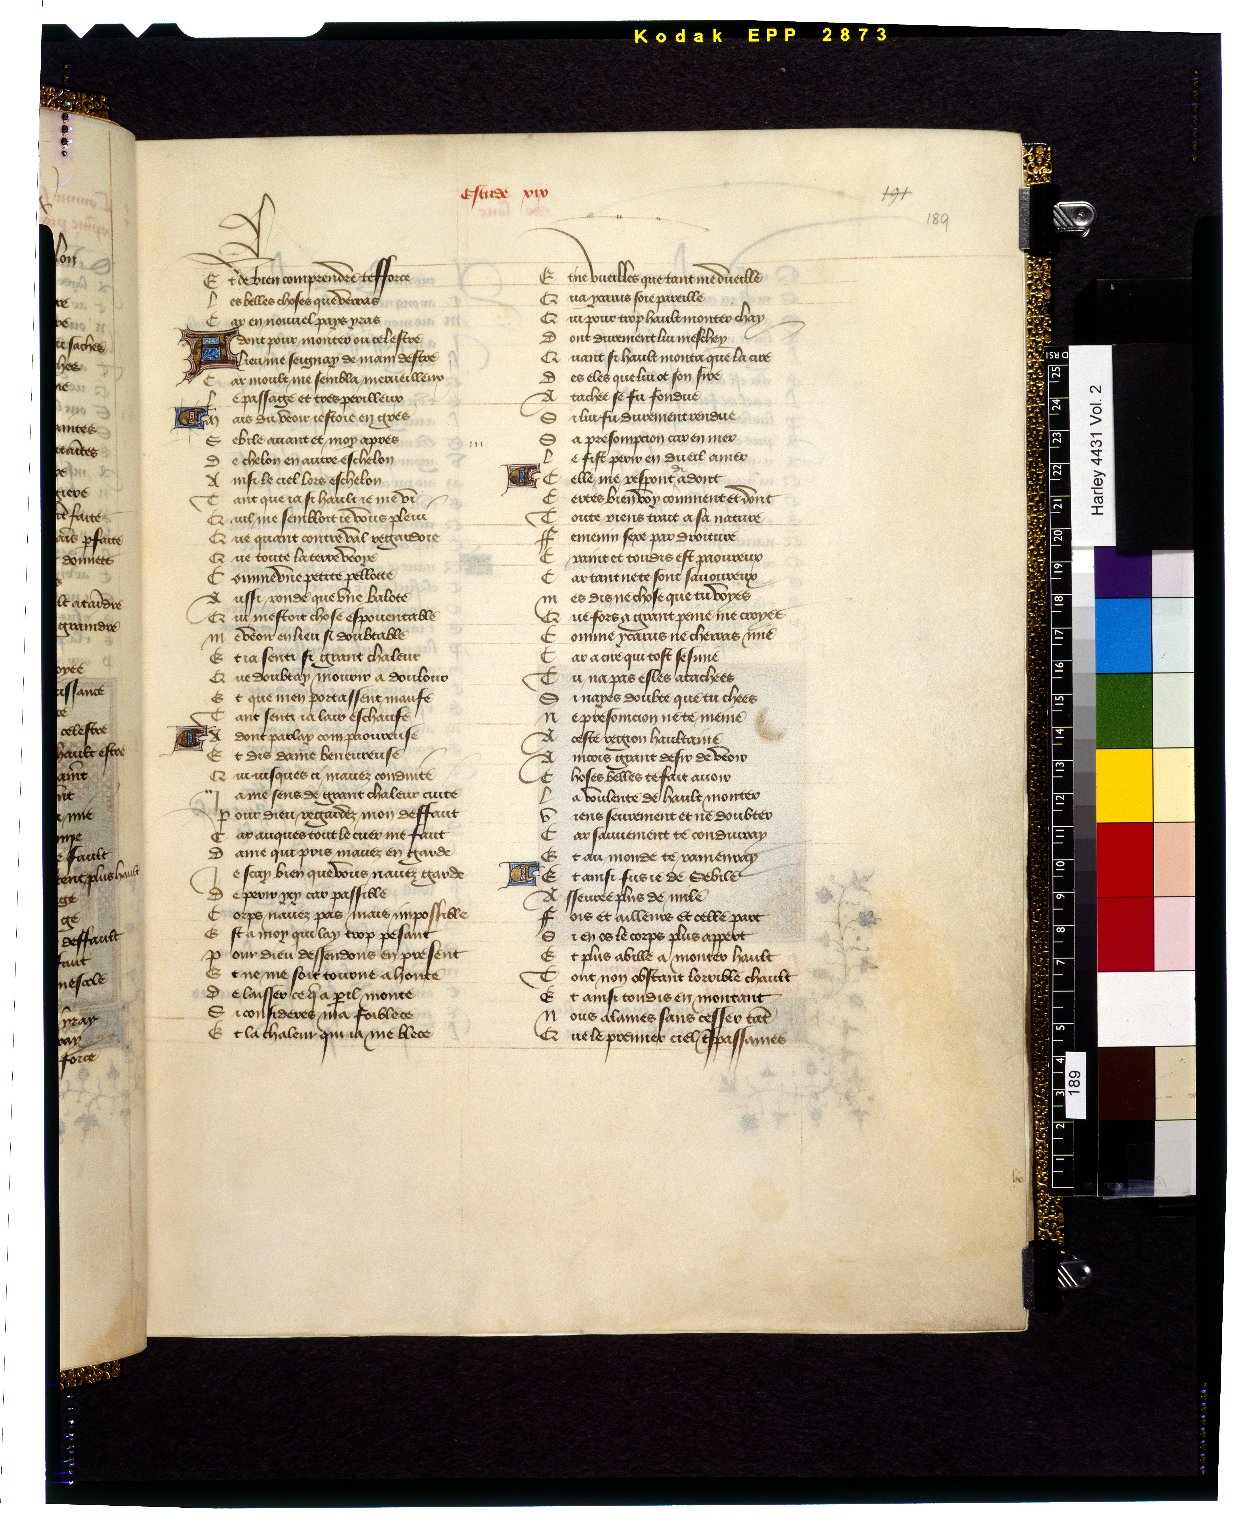 Kodak EPP 2873
Estude xix
191
189
Et de bien comprendre t'efforce
Les belles choses que verras
Car en nouvel pays yras
Adont pour monter ou celestre
Lieu me seignay de main destre
Car moult me sembla merveilleux
Le passage et tres perilleux
Mais du veoir iestoie en gres
Sebile avant et moy apres
De echelon en autre eschelon
Ainsi le ciel lors eschelon
Tant que ia si hault ie me vi
Qu'il me sembloit ie vous plevi
Que quant contre val regardoie
Que toute la terre veoye
Comme une petite pellotte
Aussi ronde que une balote
Qui mestoit chose espouentable
Me veoir en lieu si doubtable
Et ia senti si grant chaleur
Que doubtay mourir a doulour
Et que men portassent maufe
Tant senti ia lair eschaufe
Adont parlay com paoureuse
Et dis dame beneureuse
Qui iusques ci mavez conduite
Ia me sens de grant chaleur cuite
Pour dieu regardez mon deffaut
Car auques tout le cuer me faut
Dame qui pris mavez en garde
Je scay bien que vous navez garde
De perir yci car passible
Corps navez pas mais impossible
Est a moy qui lay trop pesant
Pour dieu dessendons en present
Et ne me soit tourne a honte
De laisser ce qua peril monte
Si consideres ma foiblece
Et la chaleur qui ia me blece
Et ne vueilles que tant me dueille
Qua ycarus soie pareille
Qui pour trop hault monter chay
Dont durement lui meschey
Quant si hault monta que la cire
Des eles que lui ot son sire
Atachee se fu fondue
Si lui fu durement rendue
Sa presompcion car en mer
Le fist perir en dueil amer
Celle me respont adont
Certes bien voy comment et dont
Toute riens trait a sa nature
Femenin sexe par droiture
Craint et toudis est paoureux
Car tant ne te sont savoureux
Mes dis ne chose que tu voyes
Que fors a grant peine me croyes
Comme ycarus ne cherras mie
Car a cire qui tost semie
Tu na pas esles atachees
Si nayes doubte que tu chees
Ne presomcion ne te meine
Aceste region haultaine
Aincois grant desir de veoir
Choses belles te fait avoir
La voulente de hault monter
Viens seurement et ne doubter
Car sauvement te conduiray
Et au monde te ramenray
Et ainsi fus ie de Sebile
Asseuree plus de mile
Fois et ailleurs et celle part
Si en os le corps plus appert
Et plus abille a monter hault
Tout non obstant lorrible chault
Et ainsi toudis en montant
Nous alames sans cesser tant
Que le premier ciel trespassames
Harley 4431 Vol. 2
189